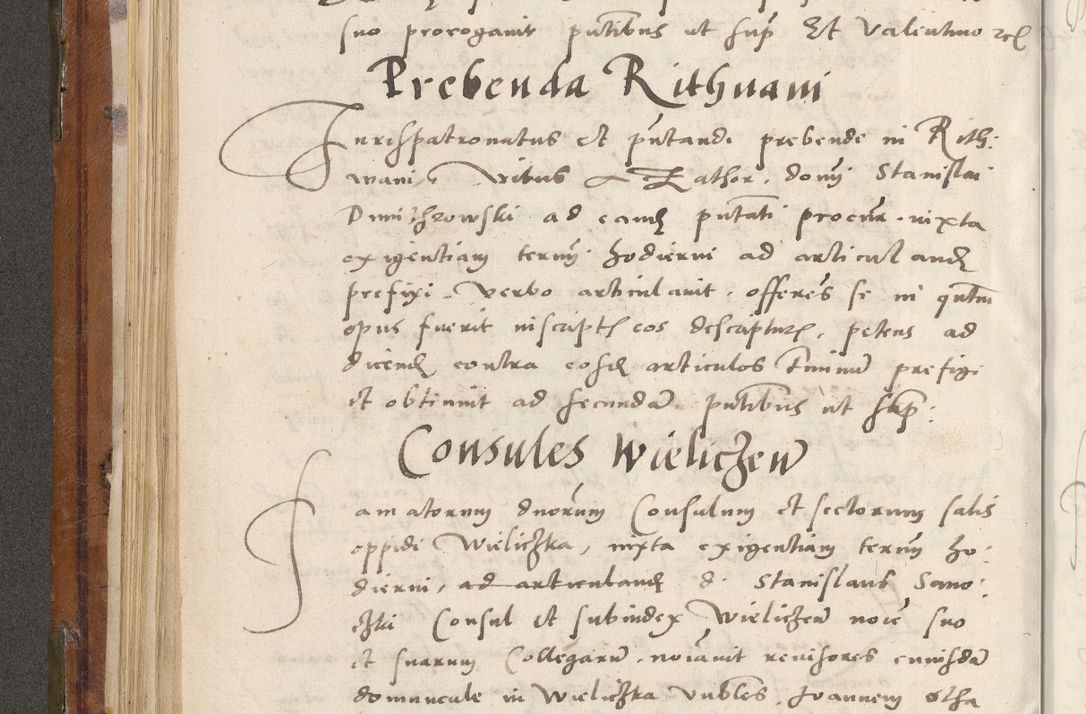 suo prorogavit pntibus ut supra Et Valentino rel
Prebenda Rithuani
Jurispatronatus et pntandi prebende in Rith:
wani, Vibus et Kathor. domi Stanislai
Dmichowski ad eand pntati procur. iuxta
exigentiam termi hodierni ad articuland
prefixi. Verbo articulavit. offeres se in qntum
opus fuerit inscript eos descriptur, petens ad
dicend contra eosd articulos terminum prefigi
et obtinuit ad secundam. pntibus ut sup:
Consules Wieliczen
Famatorum dnorum Consulum et sectorum salis
oppidi Wieliczka, iuxta exigentiam termi ho:
dierni, ad articuland d. Stanislaus Samo:
czki Consul et subiudex Wieliczen noie suo
et suorum Collegarum. noiavit revisores eiusdem
domuncule in Wieliczka Vnbles. Joannem